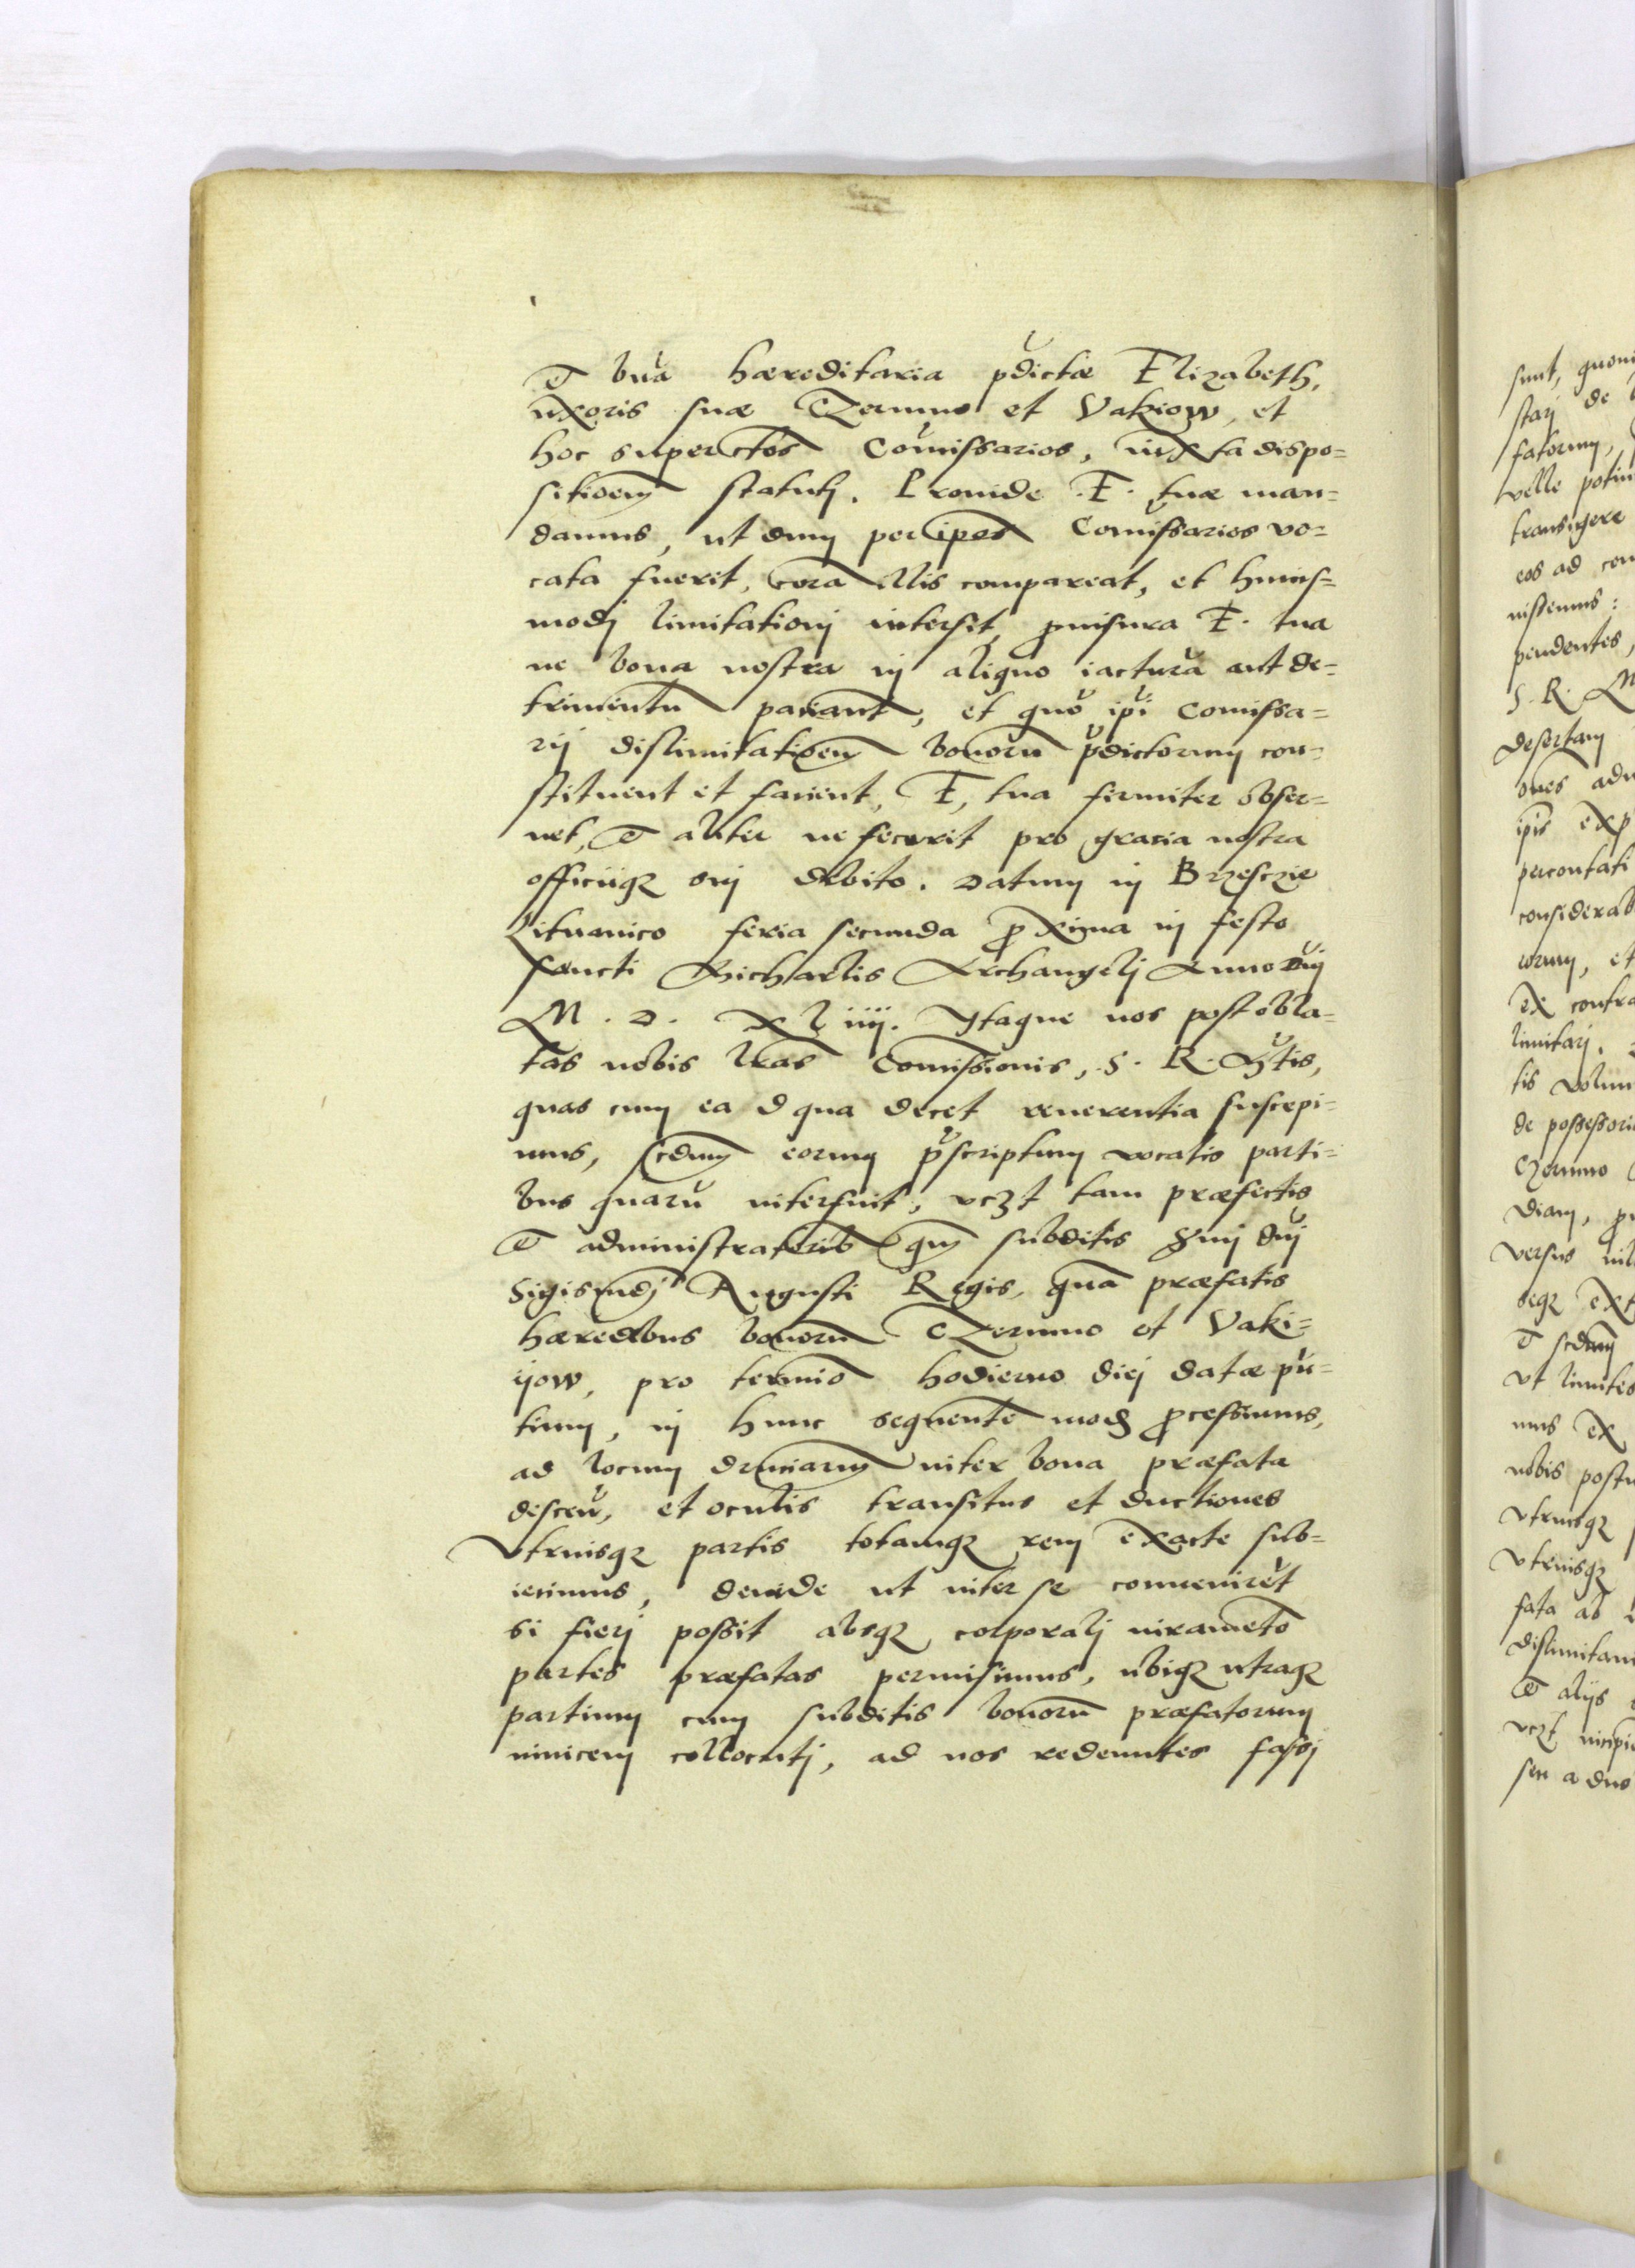 et bna haereditaria pdictae Elizabeth,
uxoris suae Czermno et Vakiow, et
hoc super ctos Comissarios, iuxta dispo=
sitioem statuti. Proinde F. tuae man=
damus, ut dum per ipos Comissarios vo=
cata fuerit, cora illis compareat, et huius=
modj limitationj intersit, prouisura F. tua
ne bona nostra in aliquo iactura aut de=
trimentu patiant, et quo ipi Comissa=
rij dislimitatioem bonoru pdictorum con=
stituent et facient, F, tua firmiter obser=
uet, et aliter ne fecerit pro gratia nostra
officiiq suj debito. Datum in Brzesczie
Lituanico feria secunda proxima in festo
sancti Michaelis Archangelj Anno Dnj
M. D. XLiiij. Itaque nos post obla=
tas nobis lras Comissionis, S. R. Mtis,
quas cum ea d qua decet reuerentia suscepi=
mus, scdum eorum pscriptum vocatis parti=
bus quaru interfuit, vczt tam praefectis
et administratorib qm subditis Smj dnj
Sigismdj Augusti Regis, qua praefatis
haeredibus bonoru Czermno et Vaki=
ijow, pro termino hodierno diej datae pn=
tium, in hunc sequente mod processimus,
ad locum inter bona praefata
et oculis transitus et ductiones
vtriusq partis totamq rem exacte sub=
iecimus, deinde ut inter se conueniret
si fierj possit absq corporalj iurameto
partes praefatas permisimus, ubiq utraq
partium cum subditis bonoru praefatorum
inuicem collocutj, ad nos redeuntes fassj
sunt, quoni
starj de
fatorum,
velle potiu
transigere
eos ad con
nissemus:
pendentes,
S. R. M
desertam
ones adu
ipis exp
percontati
considerab
torum, et
ex contra
limitarj.
tis volun
de possessori
Czermno
diam, p
versus
seq ext
et scdum
vt limites
mus ex
nobis postu
vtriusq
vtriusq
fata ab
dislimitam
et alijs
vczt incipi
seu a duo